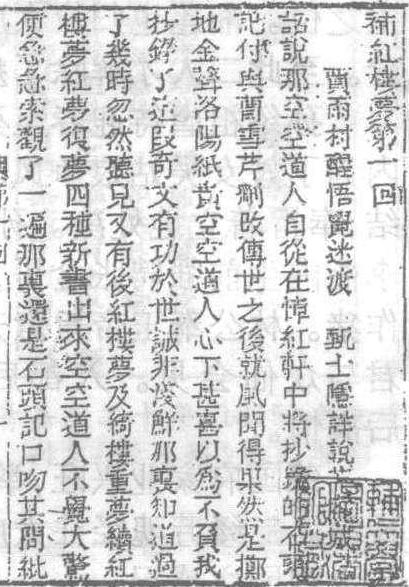 補紅樓夢第一回
賈雨村醒悟覺迷渡 甄士隱詳說
話說那空空道人自從在悼紅軒中將抄錄的石頭
記付與曹雪芹刪改傳世之後就風聞得果然是擲
地金聲洛陽紙貴空空道人心下甚喜以為不負我
抄錄了這段奇文有功於世誠非淺鮮那裏知道過
了幾時忽然聽見又有後紅樓夢及綺樓重夢續紅
樓夢紅樓復夢四種新書出來空空道人不覺大驚
便急急索觀了一遍那裏還是石頭記口吻其間紕